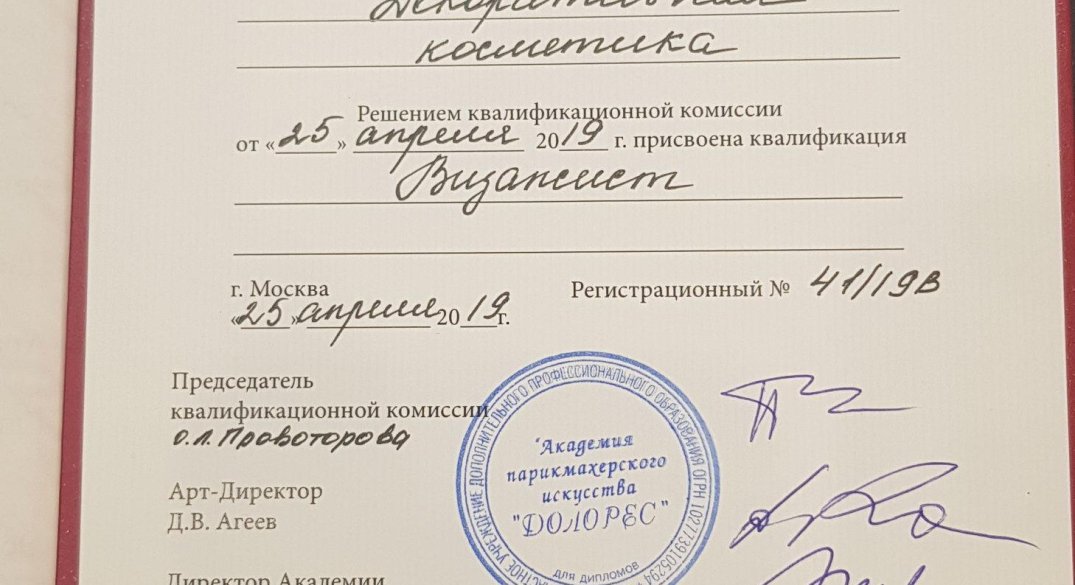 Декоративная
косметика
Решением квалификационной комиссии
от «25» апреля 2019 г. присвоена квалификация
Визажист
г. Москва
Регистрационный № 41/19В
«25» апреля 2019 г.
Председатель
квалификационной комиссии
О.Л. Правоторова
Арт-Директор
Д.В. Агеев
Директор Академии
УЧРЕЖДЕНИЕ ДОПОЛНИТЕЛЬНОГО ПРОФЕССИОНАЛЬНОГО ОБРАЗОВАНИЯ ОГРН 1027739105294
"Академия
парикмахерского
искусства
"ДОЛОРЕС"
ДЛЯ ДИПЛОМОВ